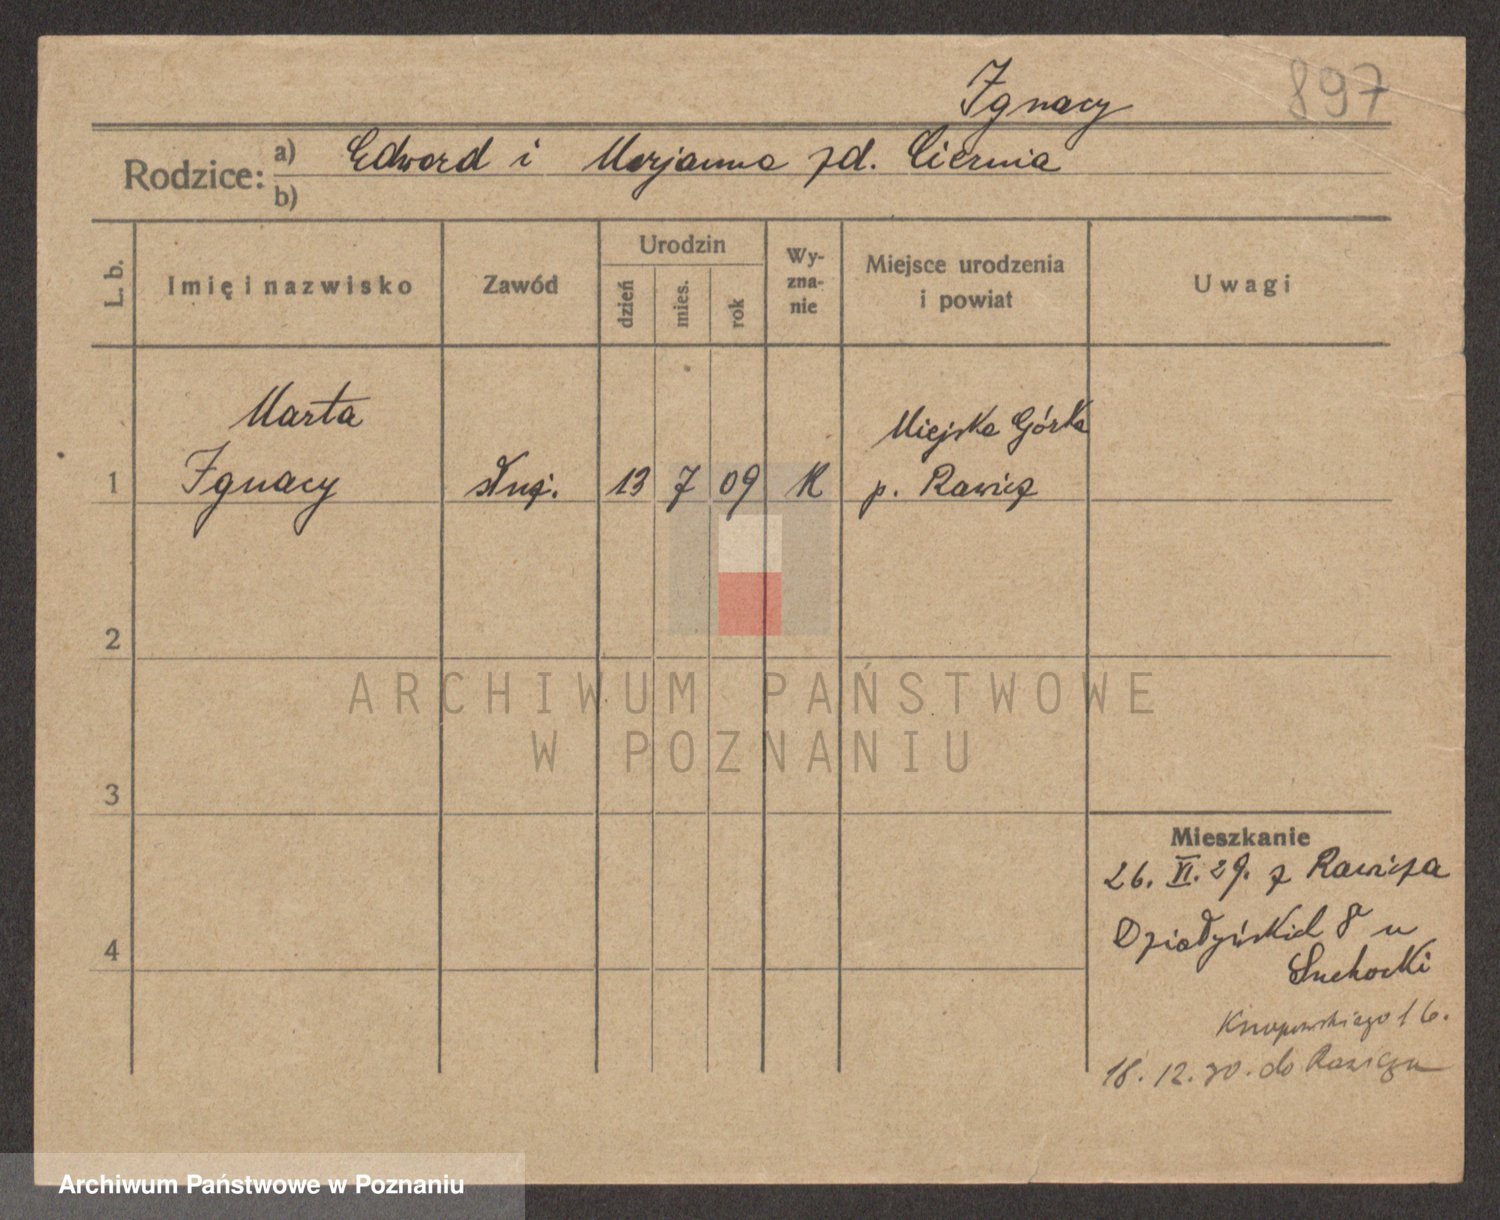 897
Ignacy
Rodzice: a) Edward i Marjanna zd. Ciernia
b)
L. b.
Imię i nazwisko
Zawód
Urodzin
dzień
mies.
rok
Wy-
zna-
nie
Miejsce urodzenia
i powiat
Uwagi
Marta
Miejska Górka
1 Ignacy służ. 13 7 09 K p. Rawicz
2
3
4
Mieszkanie
26. VI. 29. z Rawicza
Działyńskich 8 u
Suchocki
16.
18. 12. 30. do Rawicza
ARCHIWUM PAŃSTWOWE
W POZNANIU
Archiwum Państwowe w Poznaniu